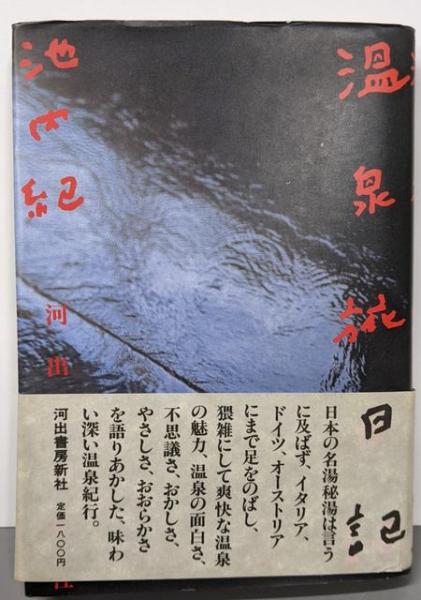 温泉旅日記
池内紀
河出
日本の名湯秘湯は言う
に及ばず、イタリア、
ドイツ、オーストリア
にまで足をのばし、
猥雑にして爽快な温泉
の魅力、温泉の面白さ、
不思議さ、おかしさ、
やさしさ、おおらかさ
を語りあかした、味わ
い深い温泉紀行。
河出書房新社
定価一八〇〇円